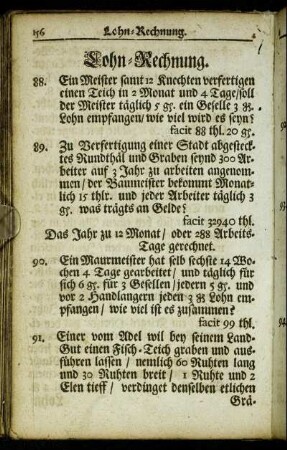 156 Lohn-Rechnung.
Lohn-Rechnung.
88. Ein Meister samt 12 Knechten verfertigen
einen Teich in 2 Monat und 4 Tage/soll
der Meister täglich 5 gß. ein Geselle 3 gß
Lohn empfangen/ wie viel wird es seyn?
facit 88 thl. 20 gß.
89. Zu Verfertigung einer Stadt abgesteck-
tes Rundthäl und Graben seynd 300 Ar-
beiter auf 3 Jahr zu arbeiten angenom-
men/ der Baumeister bekommt Monat-
lich 15 thlr. und jeder Arbeiter täglich 3
gß. was trägts an Gelde?
facit 32940 thl.
Das Jahr zu 12 Monat/ oder 288 Arbeits-
Tage gerechnet.
90. Ein Maurmeister hat selb sechste 14 Wo-
chen 4 Tage gearbeitet/ und täglich für
sich 6 gß. für 3 Gesellen/ jedern 5 gß. und
vor 2 Handlangern jeden 3 gß Lohn em-
pfangen/ wie viel ist es zusammen?
facit 99 thl.
91. Einer vom Adel wil bey seinem Land-
Gut einen Fisch-Teich graben und aus-
führen lassen/ nemlich 60 Ruhten lang
und 30 Ruhten breit/ 1 Ruhte und 2
Elen tieff/ verdinget denselben etlichen
Grä-